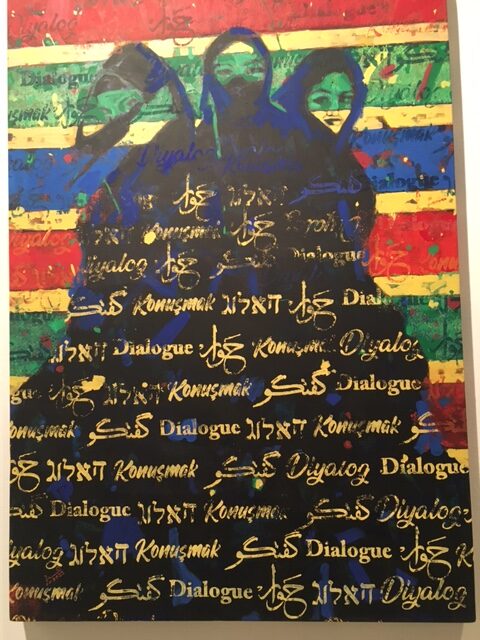 Diyalog
Dialogue حوار Konuşmak
Diyalog
Konuşmak
حوار דיאלוג گفتگو Dialogue
דיאלוג Konuşmak حوار
Diyalog حوار گفتگو Dialogue حوار
گفتگو Konuşmak דיאלוג حوار
דיאלוג Dialogue حوار Konuşmak Diyalog
حوار דיאלוג Konuşmak گفتگو Dialogue
Konuşmak گفتگو Dialogue حوار דיאלוג Konuşmak
حوار דיאלוג Konuşmak گفتگو Diyalog Dialogue
گفتگو Dialogue דיאלוג Konuşmak گفتگو Diyalog
Diyalog דיאלוג Konuşmak گفتگو Dialogue حوار
Konuşmak گفتگو Dialogue حوار דיאלוג Diyalog